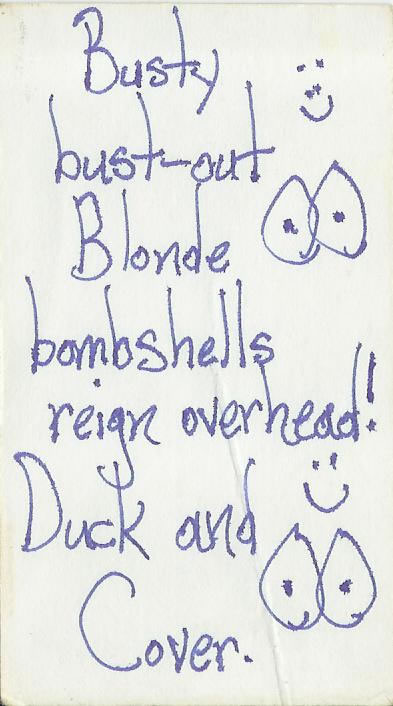 Busty
bust-out
Blonde
bombshells
reign overhead!
Duck and
Cover.